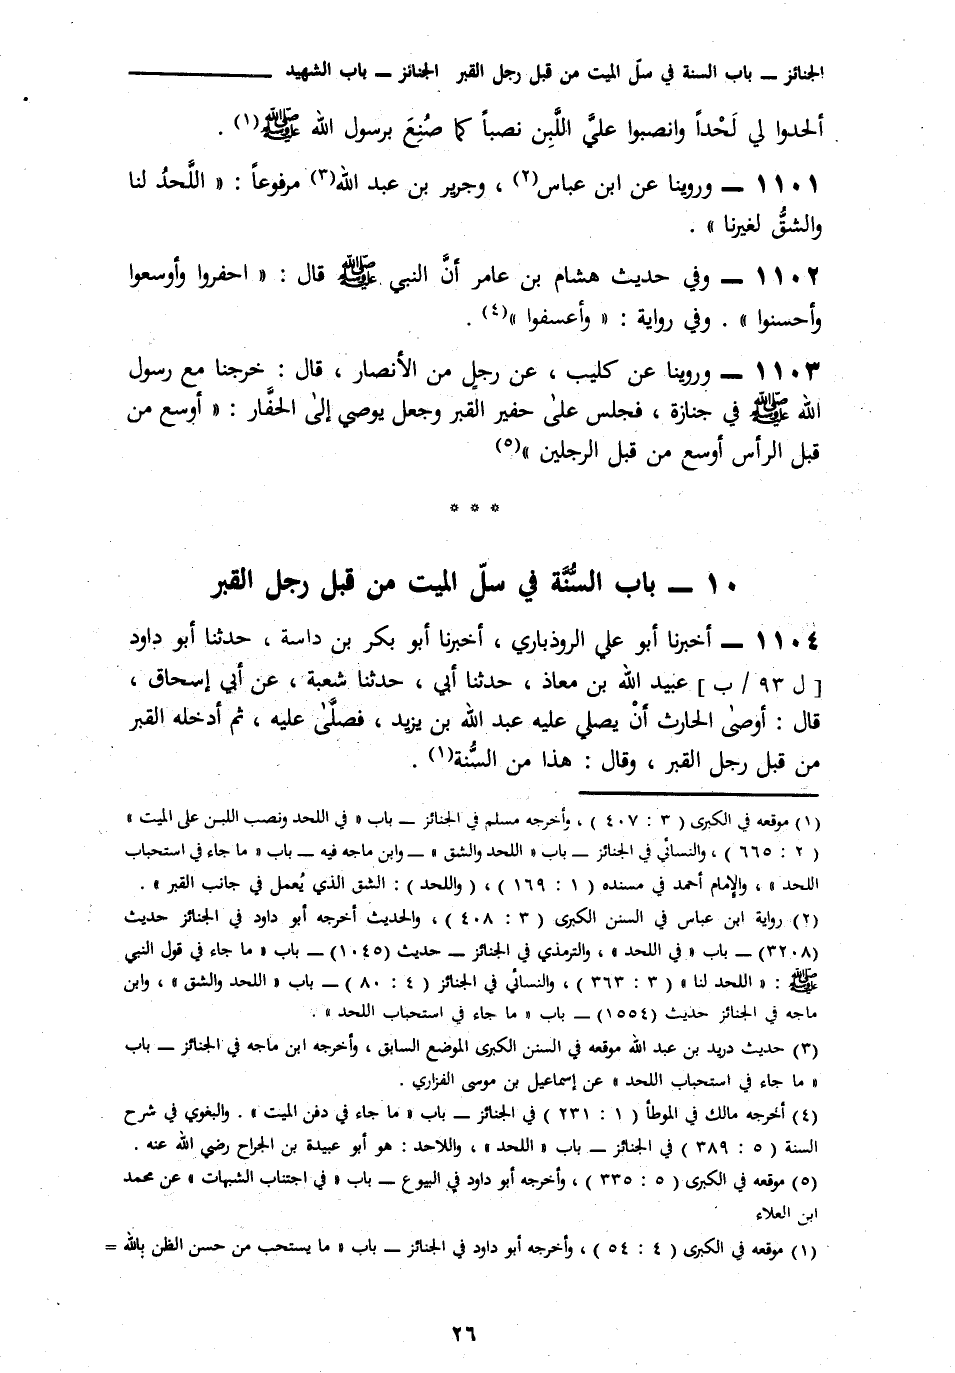 الجنائز ــ باب السنة في سلّ الميت من قبل رجل القبر الجنائز ــ باب الشهيد
ألحدوا لي لَحْداً وانصبوا عليَّ اللَّبِن نصباً كما صُنِعَ برسول الله ﷺ(١) .
١١٠١ ــ وروينا عن ابن عباس(٢) ، وجرير بن عبد الله(٣) مرفوعاً : « اللَّحدُ لنا
والشقُّ لغيرنا » .
١١٠٢ ــ وفي حديث هشام بن عامر أنَّ النبي ﷺ قال : « احفروا وأوسعوا
وأحسنوا » . وفي رواية : « وأعسفوا »(٤) .
١١٠٣ ــ وروينا عن كليب ، عن رجلٍ من الأنصار ، قال : خرجنا مع رسول
الله ﷺ في جنازة ، فجلس علىٰ حفير القبر وجعل يوصي إلىٰ الحفَّار : « أوسع من
قبل الرأس أوسع من قبل الرجلين »(٥)
* * *
١٠ ــ باب السُّنَّة في سلّ الميت من قبل رجل القبر
١١٠٤ ــ أخبرنا أبو علي الروذباري ، أخبرنا أبو بكر بن داسة ، حدثنا أبو داود
[ ل ٩٣ / ب ] عبيد الله بن معاذ ، حدثنا أبي ، حدثنا شعبة ، عن أبي إسحاق ،
قال : أوصىٰ الحارث أنْ يصلي عليه عبد الله بن يزيد ، فصلَّىٰ عليه ، ثم أدخله القبر
من قبل رجل القبر ، وقال : هذا من السُّنة(١) .
(١) موقعه في الكبرى ( ٣ : ٤٠٧ ) ، وأخرجه مسلم في الجنائز ــ باب « في اللحد ونصب اللبن على الميت »
( ٢ : ٦٦٥ ) ، والنسائي في الجنائز ــ باب « اللحد والشق » ــ وابن ماجه فيه ــ باب « ما جاء في استحباب
اللحد » ، والإمام أحمد في مسنده ( ١ : ١٦٩ ) ، ( واللحد ) : الشق الذي يُعمل في جانب القبر » .
(٢) رواية ابن عباس في السنن الكبرى ( ٣ : ٤٠٨ ) ، والحديث أخرجه أبو داود في الجنائز حديث
(٣٢٠٨) ــ باب « في اللحد » ، والترمذي في الجنائز ــ حديث (١٠٤٥) ــ باب « ما جاء في قول النبي
ﷺ : « اللحد لنا » ( ٣ : ٣٦٣ ) ، والنسائي في الجنائز ( ٤ : ٨٠ ) ــ باب « اللحد والشق » ، وابن
ماجه في الجنائز حديث (١٥٥٤) ــ باب « ما جاء في استحباب اللحد » .
(٣) حديث دريد بن عبد الله موقعه في السنن الكبرى الموضع السابق ، وأخرجه ابن ماجه في الجنائز ــ باب
« ما جاء في استحباب اللحد » عن إسماعيل بن موسى الفزاري .
(٤) أخرجه مالك في الموطأ ( ١ : ٢٣١ ) في الجنائز ــ باب « ما جاء في دفن الميت » . والبغوي في شرح
السنة ( ٥ : ٣٨٩ ) في الجنائز ــ باب « اللحد » ، واللاحد : هو أبو عبيدة بن الجراح رضي الله عنه .
(٥) موقعه في الكبرى ( ٥ : ٣٣٥ ) ، وأخرجه أبو داود في البيوع ــ باب « في اجتناب الشبهات » عن محمد
ابن العلاء
(١) موقعه في الكبرى ( ٤ : ٥٤ ) ، وأخرجه أبو داود في الجنائز ــ باب « ما يستحب من حسن الظن بالله =
٢٦